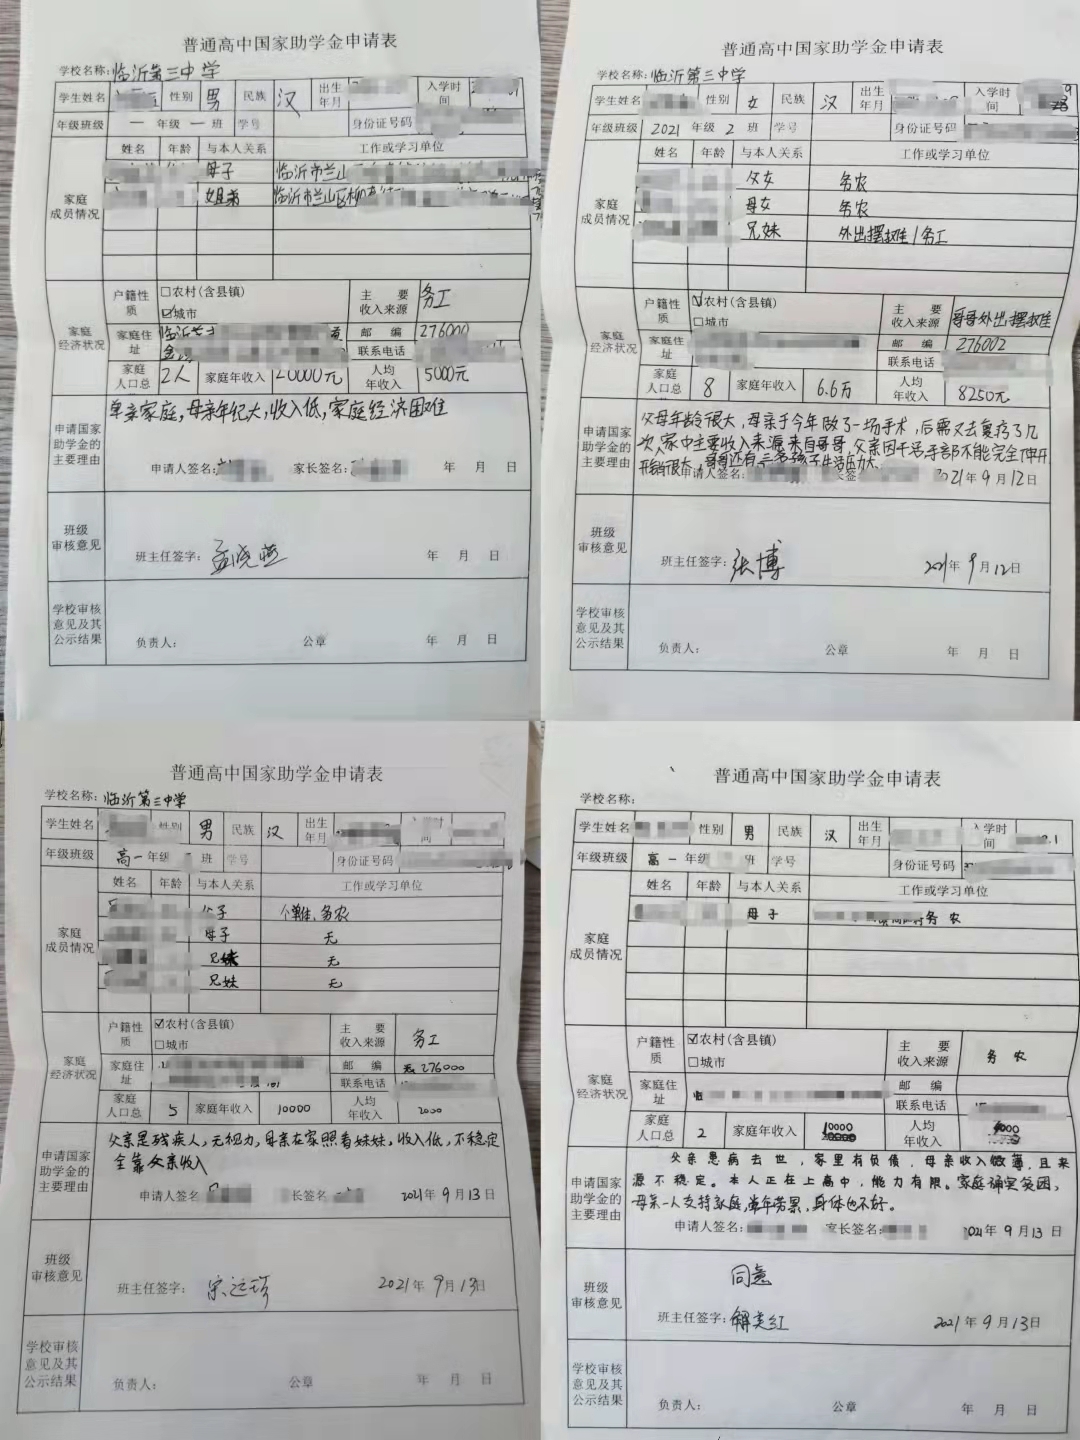 普通高中国家助学金申请表
学校名称：临沂第三中学
学生姓名 性别 男 民族 汉 出生年月 入学时间
年级班级 一 年级 一 班 学号 身份证号码
家庭成员情况 姓名 年龄 与本人关系 工作或学习单位
母子 临沂市兰山
姐弟 临沂市兰山区柳
家庭经济状况 户籍性质 □农村(含县镇) ☑城市 主要收入来源 务工
家庭住址 临沂 邮编 276000
联系电话
家庭人口总 2人 家庭年收入 20000元 人均年收入 5000元
申请国家助学金的主要理由 单亲家庭，母亲年纪大，收入低，家庭经济困难
申请人签名： 家长签名： 年 月 日
班级审核意见 班主任签字：孟晓燕 年 月 日
学校审核意见及其公示结果 负责人： 公章 年 月 日
普通高中国家助学金申请表
学校名称：临沂第三中学
学生姓名 性别 女 民族 汉 出生年月 入学时间
年级班级 2021 年级 2 班 学号 身份证号码
家庭成员情况 姓名 年龄 与本人关系 工作或学习单位
父女 务农
母女 务农
兄妹 外出摆摊/务工
家庭经济状况 户籍性质 ☑农村(含县镇) □城市 主要收入来源 哥哥外出摆摊
家庭住址 邮编 276002
联系电话
家庭人口总 8 家庭年收入 6.6万 人均年收入 8250元
申请国家助学金的主要理由 父母年龄很大，母亲于今年做了一场手术，后需又去复疗了几
次，家中主要收入来源来自哥哥，父亲因干活手部不能完全伸开
开销很大，哥哥还有三名孩子生活压力大。
申请人签名： 家长签 2021年9月12日
班级审核意见 班主任签字：张博 2021年9月12日
学校审核意见及其公示结果 负责人： 公章 年 月 日
普通高中国家助学金申请表
学校名称：临沂第三中学
学生姓名 性别 男 民族 汉 出生年月
年级班级 高一 年级 班 学号 身份证号码
家庭成员情况 姓名 年龄 与本人关系 工作或学习单位
父子 务农
母子 无
兄妹 无
兄妹 无
家庭经济状况 户籍性质 ☑农村(含县镇) □城市 主要收入来源 务工
家庭住址 邮编 276000
联系电话
家庭人口总 5 家庭年收入 10000 人均年收入 2000
申请国家助学金的主要理由 父亲是残疾人，无视力，母亲在家照看妹妹，收入低，不稳定
全靠父亲收入
申请人签名 家长签名 2021年9月13日
班级审核意见 班主任签字： 2021年9月13日
学校审核意见及其公示结果 负责人： 公章 年 月 日
普通高中国家助学金申请表
学校名称：
学生姓名 性别 男 民族 汉 出生年月 入学时间
年级班级 高一 年级 班 学号 身份证号码
家庭成员情况 姓名 年龄 与本人关系 工作或学习单位
母子 务农
家庭经济状况 户籍性质 ☑农村(含县镇) □城市 主要收入来源 务农
家庭住址 邮编
联系电话
家庭人口总 2 家庭年收入 10000 人均年收入
申请国家助学金的主要理由 父亲患病去世，家里有负债，母亲收入微薄，且来
源不稳定。本人正在上高中，能力有限。家庭确实贫困，
母亲一人支持家庭，常年劳累，身体也不好。
申请人签名： 家长签名： 2021年9月13日
班级审核意见 同意
班主任签字： 2021年9月13日
学校审核意见及其公示结果 负责人： 公章 年 月 日